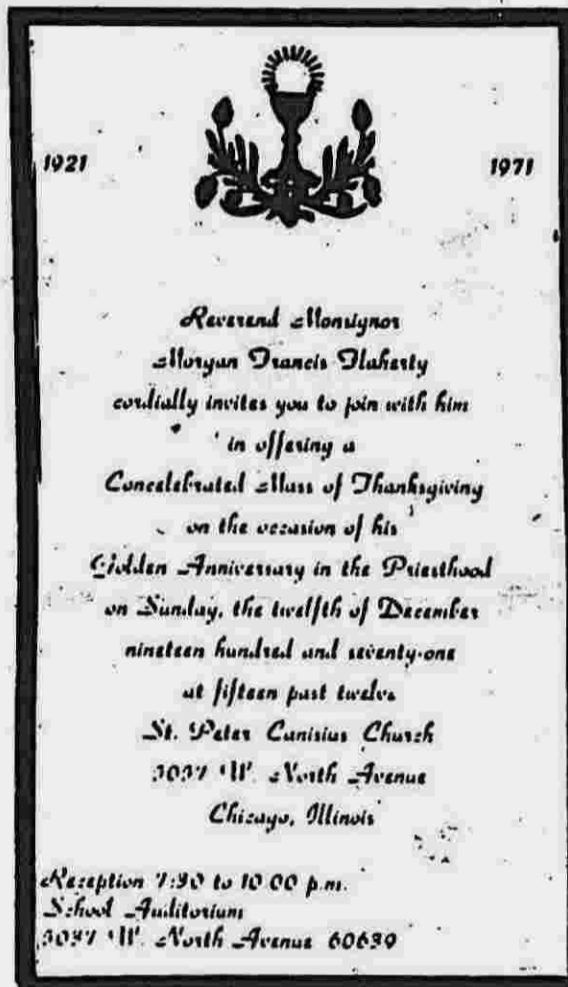 1921
1971
Reverend Monsignor
Morgan Francis Flaherty
cordially invites you to join with him
in offering a
Concelebrated Mass of Thanksgiving
on the occasion of his
Golden Anniversary in the Priesthood
on Sunday, the twelfth of December
nineteen hundred and seventy-one
at fifteen past twelve
St. Peter Canisius Church
W. North Avenue
Chicago, Illinois
Reception 7:30 to 10:00 p.m.
School Auditorium
W. North Avenue 60639